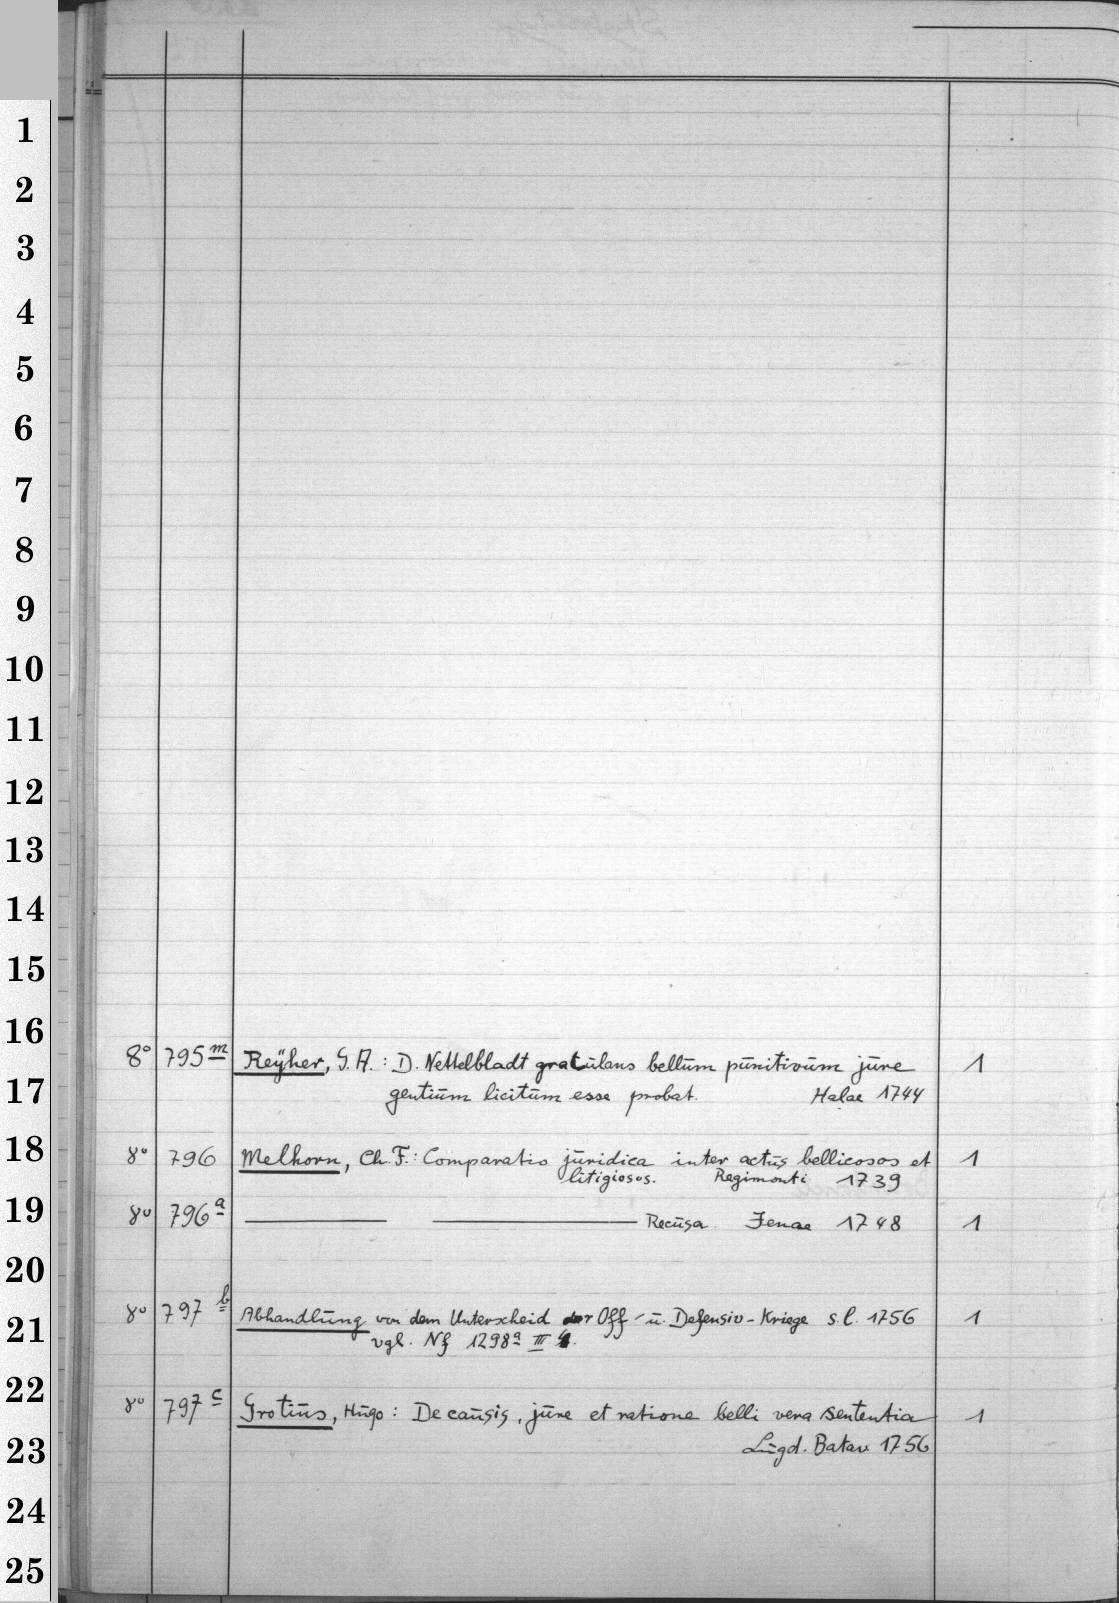 1
2
3
4
5
6
7
8
9
10
11
12
13
14
15
16
8° 795 m Reÿher, G. A.: D. Nettelbladt gratulans bellum punitivum jure 1
17
gentium licitum esse probat. Halae 1744
18
8° 796 Melhorn, Ch. F.: Comparatio juridica inter actus bellicosos et 1
litigiosos. Regimonti 1739
19
8° 796 a Recusa. Jenae 1748 1
20
8° 797 b Abhandlung von dem Unterscheid der Off- u. Defensiv-Kriege s.l. 1756 1
21
vgl. Nf 1298 a III 4.
22
8° 797 c Grotius, Hugo: De causis, jure et ratione belli vera sententia 1
23
Lugd. Batav 1756
24
25